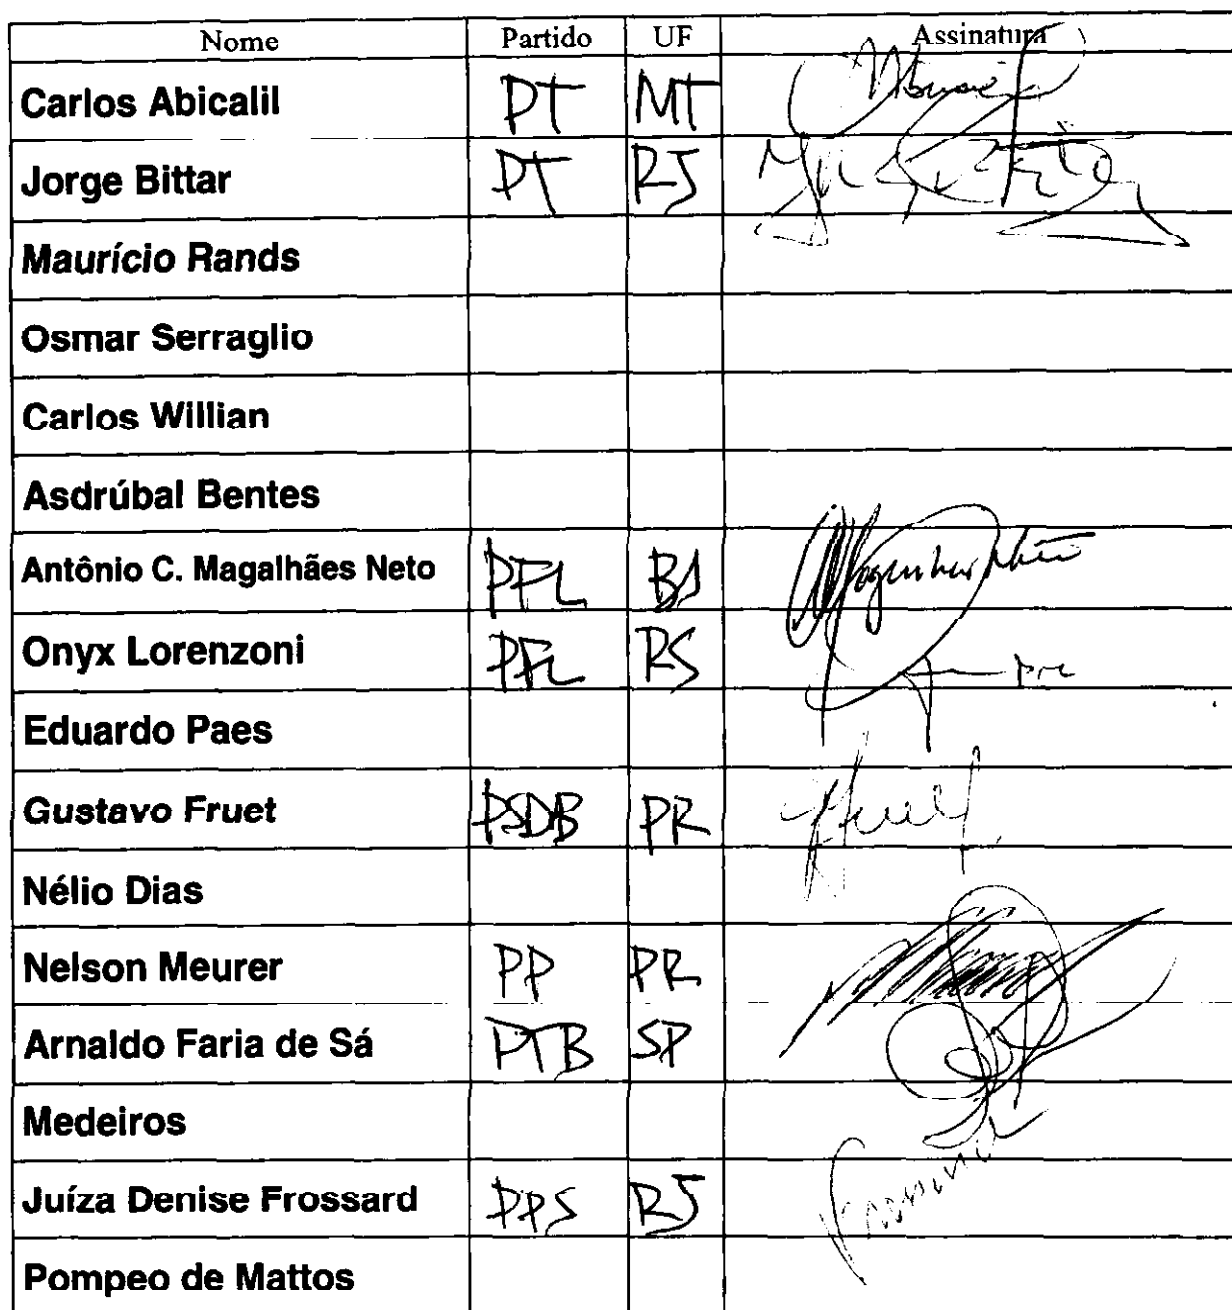 Nome Partido UF Assinatura
Carlos Abicalil PT MT
Jorge Bittar PT RJ
Maurício Rands
Osmar Serraglio
Carlos Willian
Asdrúbal Bentes
Antônio C. Magalhães Neto PFL BA
Onyx Lorenzoni PFL RS
Eduardo Paes
Gustavo Fruet PSDB PR Fruet
Nélio Dias
Nelson Meurer PP PR
Arnaldo Faria de Sá PTB SP
Medeiros
Juíza Denise Frossard PPS RJ
Pompeo de Mattos